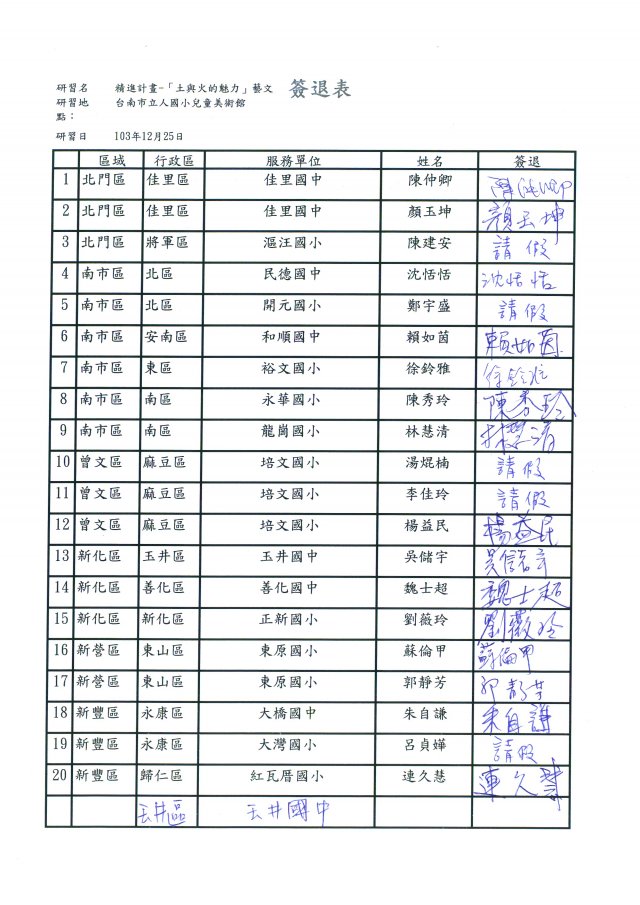 簽退表
研習名 精進計畫-「土與火的魅力」藝文
研習地 台南市立人國小兒童美術館
點：
研習日 103年12月25日
區域 行政區 服務單位 姓名 簽退
1 北門區 佳里區 佳里國中 陳仲卿
2 北門區 佳里區 佳里國中 顏玉坤 顏玉坤
3 北門區 將軍區 漚汪國小 陳建安 請假
4 南市區 北區 民德國中 沈恬恬 沈恬恬
5 南市區 北區 開元國小 鄭宇盛 請假
6 南市區 安南區 和順國中 賴如茵 賴如茵
7 南市區 東區 裕文國小 徐鈴雅 徐鈴雅
8 南市區 南區 永華國小 陳秀玲 陳秀玲
9 南市區 南區 龍崗國小 林慧清 林慧清
10 曾文區 麻豆區 培文國小 湯焜楠 請假
11 曾文區 麻豆區 培文國小 李佳玲 請假
12 曾文區 麻豆區 培文國小 楊益民 楊益民
13 新化區 玉井區 玉井國中 吳儲宇 吳儲宇
14 新化區 善化區 善化國中 魏士超 魏士超
15 新化區 新化區 正新國小 劉薇玲 劉薇玲
16 新營區 東山區 東原國小 蘇倫甲 蘇倫甲
17 新營區 東山區 東原國小 郭靜芳 郭靜芳
18 新豐區 永康區 大橋國中 朱自謙 朱自謙
19 新豐區 永康區 大灣國小 呂貞嬅 請假
20 新豐區 歸仁區 紅瓦厝國小 連久慧 連久慧
玉井區 玉井國中